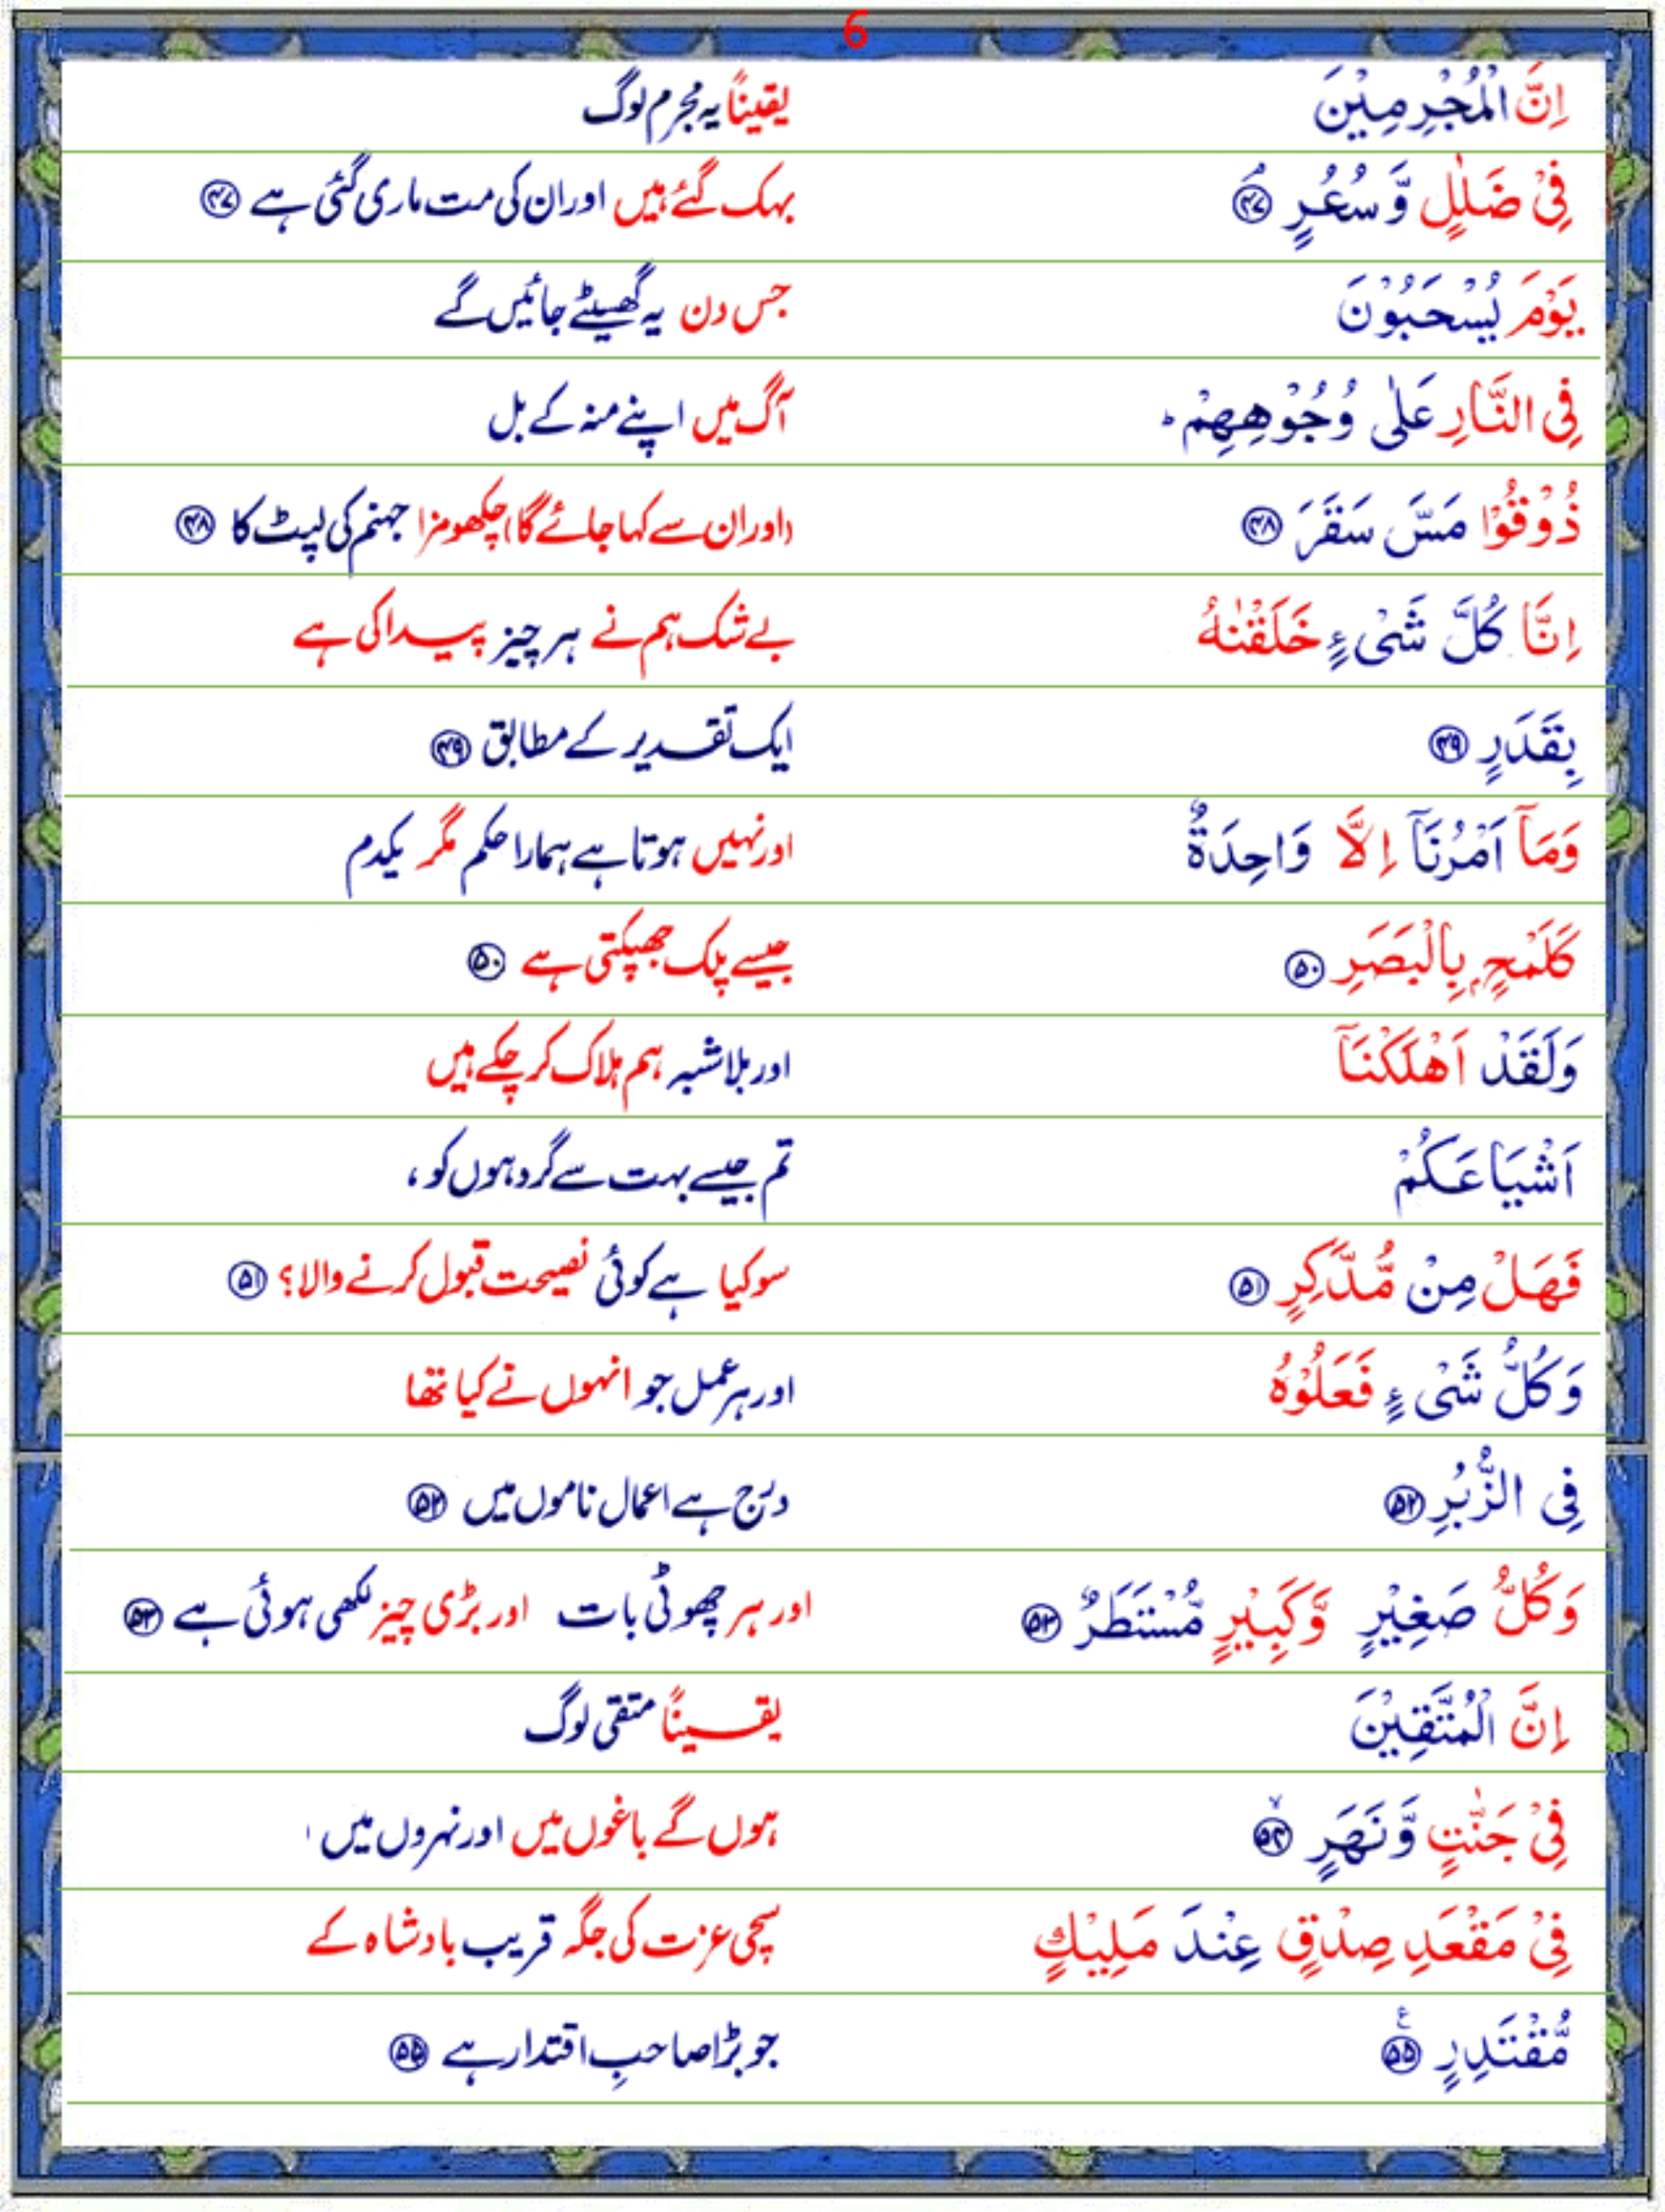 6
اِنَّ الْمُجْرِمِيْنَ یقیناً یہ مجرم لوگ
فِيْ ضَلٰلٍ وَّسُعُرٍ ۘ﴿۴۷﴾ بہک گئے ہیں اوران کی مت ماری گئی ہے ﴿۴۷﴾
يَوْمَ يُسْحَبُوْنَ جس دن یہ گھسیٹے جائیں گے
فِى النَّارِ عَلٰى وُجُوْهِهِمْ ؕ آگ میں اپنے منہ کے بل
ذُوْقُوْا مَسَّ سَقَرَ ﴿۴۸﴾ (اوران سے کہا جائے گا) چکھومزا جہنم کی لپٹ کا ﴿۴۸﴾
اِنَّا كُلَّ شَىْءٍ خَلَقْنٰهُ بے شک ہم نے ہر چیز پیدا کی ہے
بِقَدَرٍ ﴿۴۹﴾ ایک تقدیر کے مطابق ﴿۴۹﴾
وَمَآ اَمْرُنَآ اِلَّا وَاحِدَةٌ اورنہیں ہوتا ہے ہمارا حکم مگر یکدم
كَلَمْحٍۭ بِالْبَصَرِ ﴿۵۰﴾ جیسے پلک جھپکتی ہے ﴿۵۰﴾
وَلَقَدْ اَهْلَكْنَآ اور بلاشبہ ہم ہلاک کر چکے ہیں
اَشْيَاعَكُمْ تم جیسے بہت سے گروہوں کو،
فَهَلْ مِنْ مُّدَّكِرٍ ﴿۵۱﴾ سو کیا ہے کوئی نصیحت قبول کرنے والا؟ ﴿۵۱﴾
وَكُلُّ شَىْءٍ فَعَلُوْهُ اور ہر عمل جو انہوں نے کیا تھا
فِى الزُّبُرِ ﴿۵۲﴾ درج ہے اعمال ناموں میں ﴿۵۲﴾
وَكُلُّ صَغِيْرٍ وَّكَبِيْرٍ مُّسْتَطَرٌ ﴿۵۳﴾ اور ہر چھوٹی بات اور بڑی چیز لکھی ہوئی ہے ﴿۵۳﴾
اِنَّ الْمُتَّقِيْنَ یقیناً متقی لوگ
فِيْ جَنّٰتٍ وَّنَهَرٍ ۙ﴿۵۴﴾ ہوں گے باغوں میں اور نہروں میں
فِيْ مَقْعَدِ صِدْقٍ عِنْدَ مَلِيْكٍ سچی عزت کی جگہ قریب بادشاہ کے
مُّقْتَدِرٍ ﴿۵۵﴾ ع جو بڑا صاحبِ اقتدار ہے ﴿۵۵﴾